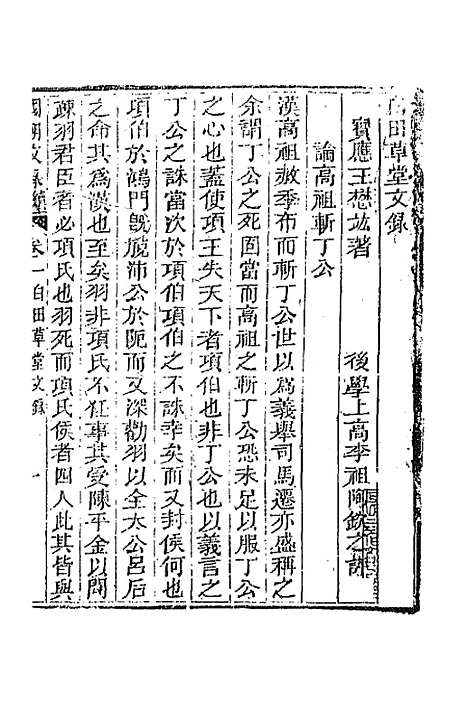 白田草堂文録
寶應王懋竑著 後學上高李祖陶欽之評
論高祖斬丁公
漢高祖赦季布而斬丁公世以為義舉司馬遷亦盛稱之
余謂丁公之死固當而高祖之斬丁公恐未足以服丁公
之心也蓋使項王失天下者項伯也非丁公也以義言之
丁公之誅當次於項伯項伯之不誅幸矣而又封侯何也
項伯於鴻門旣脫沛公於阨而又深勸羽以全太公呂后
之命其爲漢也至矣羽非項氏不任事其受陳平金以閒
疎羽君臣者必項氏也羽死而項氏侯者四人此其皆與
國朝文錄續 卷一白田草堂文錄 一